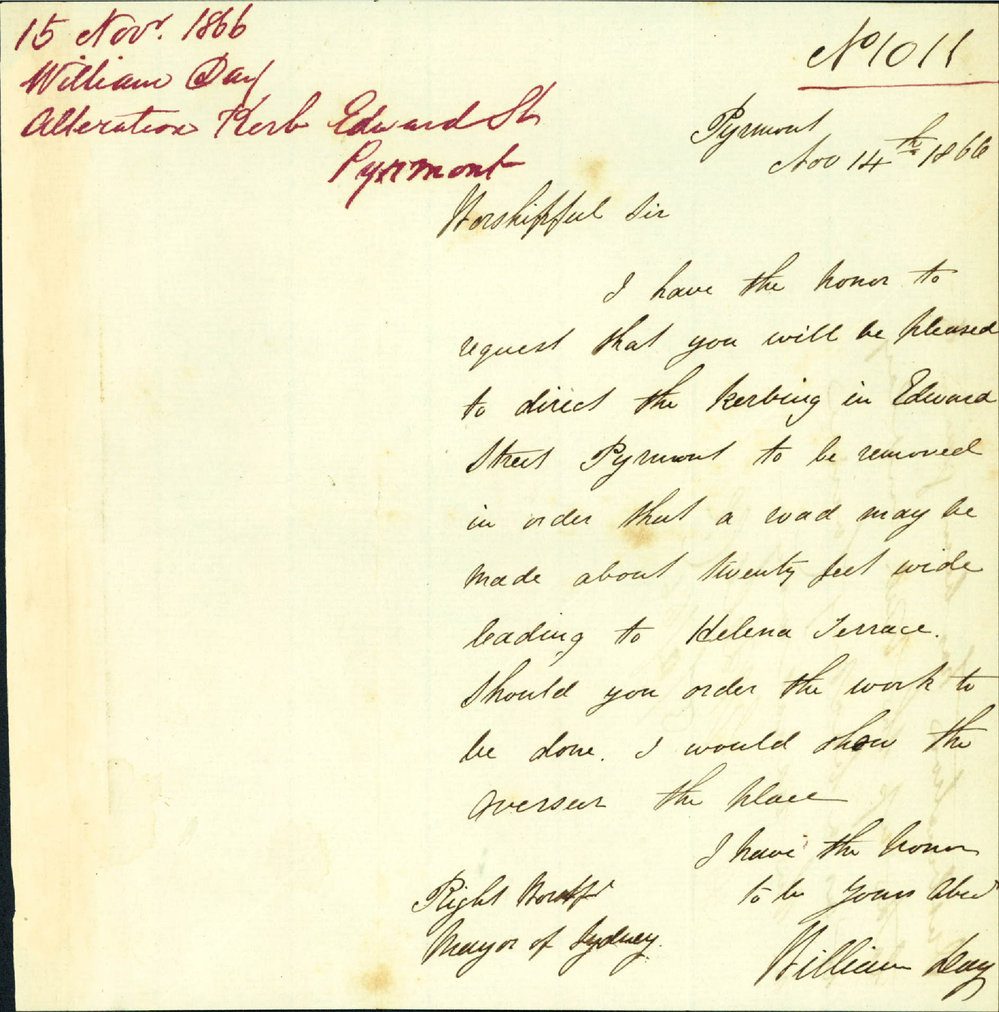 15 Novr. 1866
William Day
Alteration Kerb Edward St
Pyrmont
No 1011
Pyrmont
Nov 14th 1866
Worshipful Sir
I have the honor to
request that you will be pleased
to direct the kerbing in Edward
Street Pyrmont to be removed
in order that a road may be
made about twenty feet wide
leading to Helena Terrace.
Should you order the work to
be done. I would show the
overseer the place
I have the honor
to be Yours Obed
William Day
Right Worshfl
Mayor of Sydney.